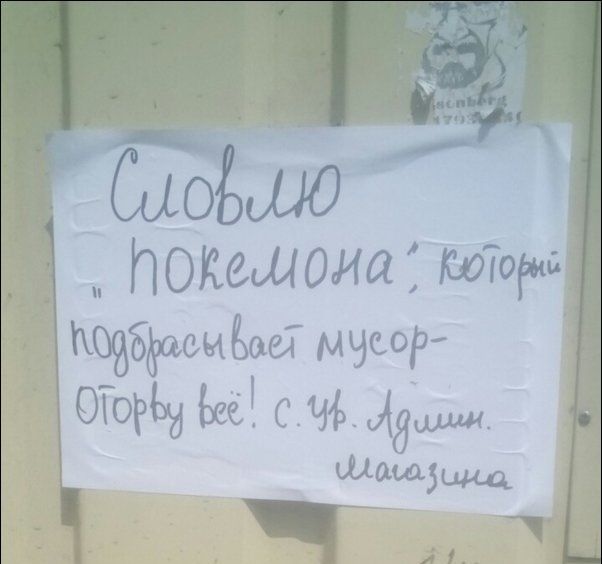 senberg
Словлю
„покемона", который
подбрасывает мусор-
Оторву всё! с. ур. Админ.
магазина